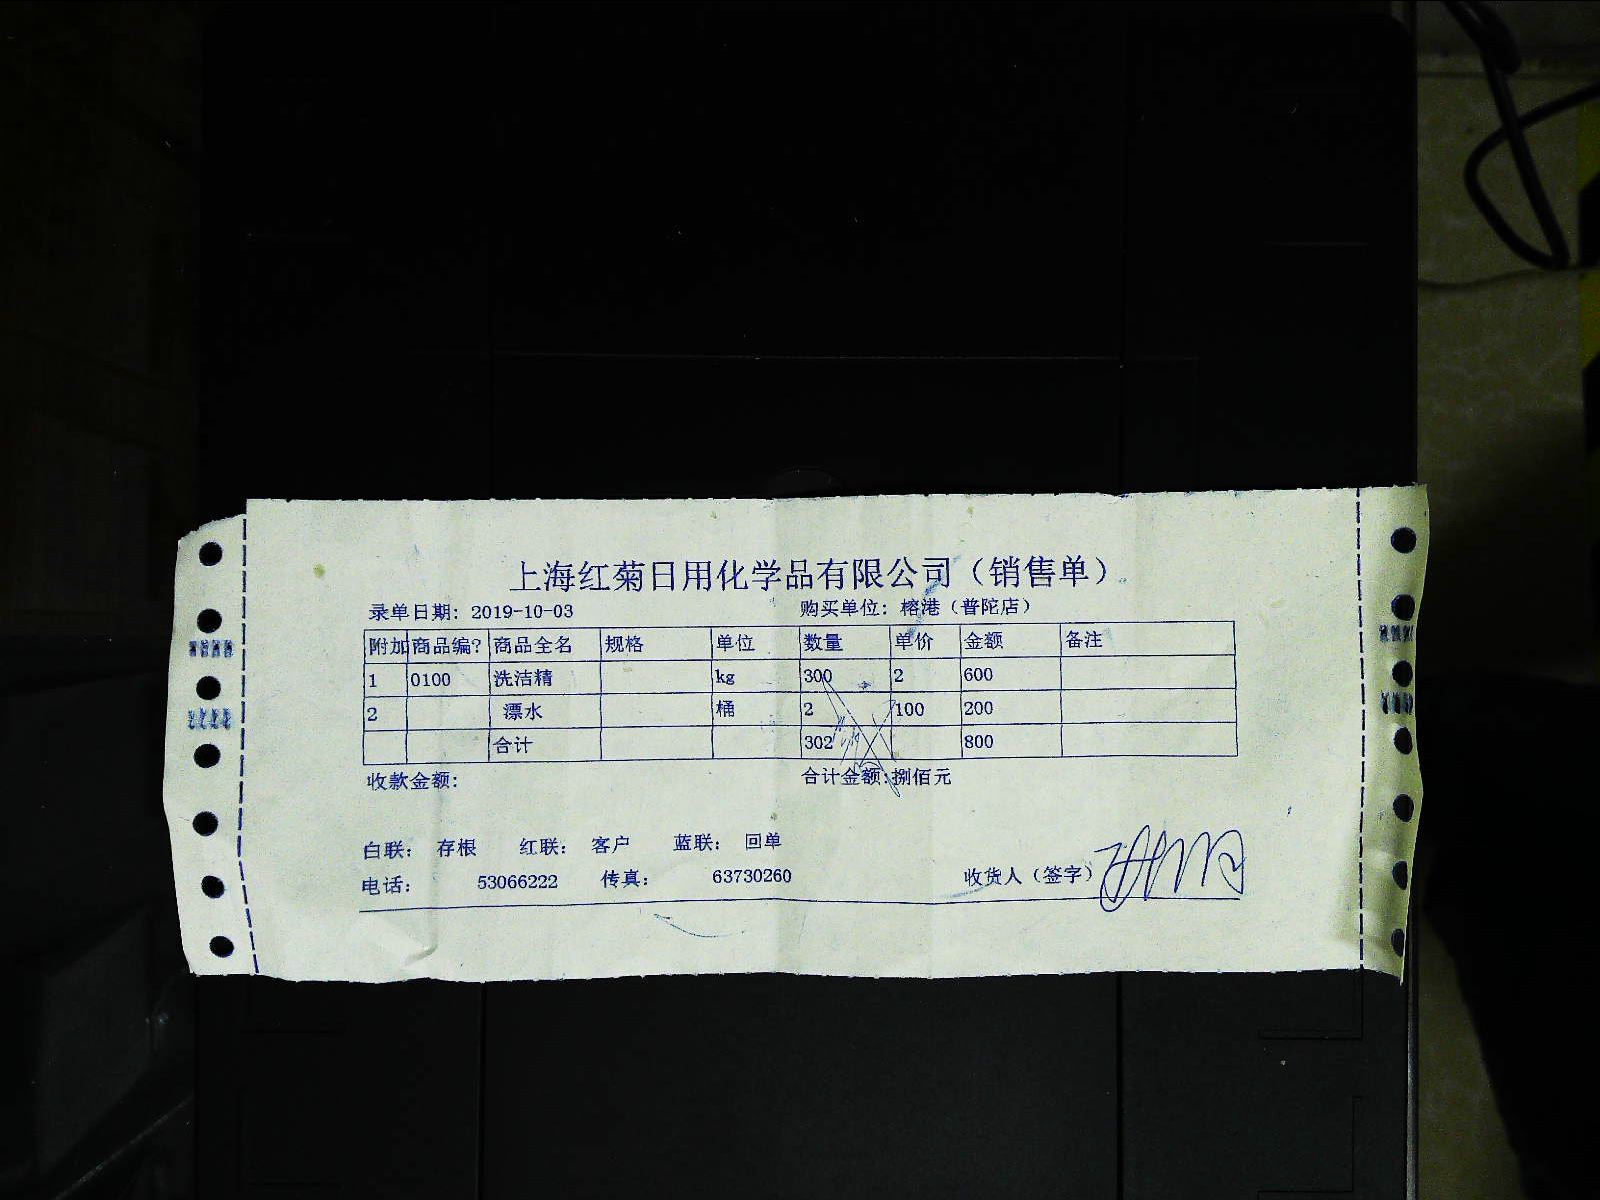 上海红菊日用化学品有限公司（销售单）
录单日期: 2019-10-03 购买单位: 榕港（普陀店）
附加 商品编? 商品全名 规格 单位 数量 单价 金额 备注
1 0100 洗洁精 kg 300 2 600
2 漂水 桶 2 100 200
合计 302 800
收款金额: 合计金额:捌佰元
白联: 存根 红联: 客户 蓝联: 回单
电话: 53066222 传真: 63730260 收货人（签字）